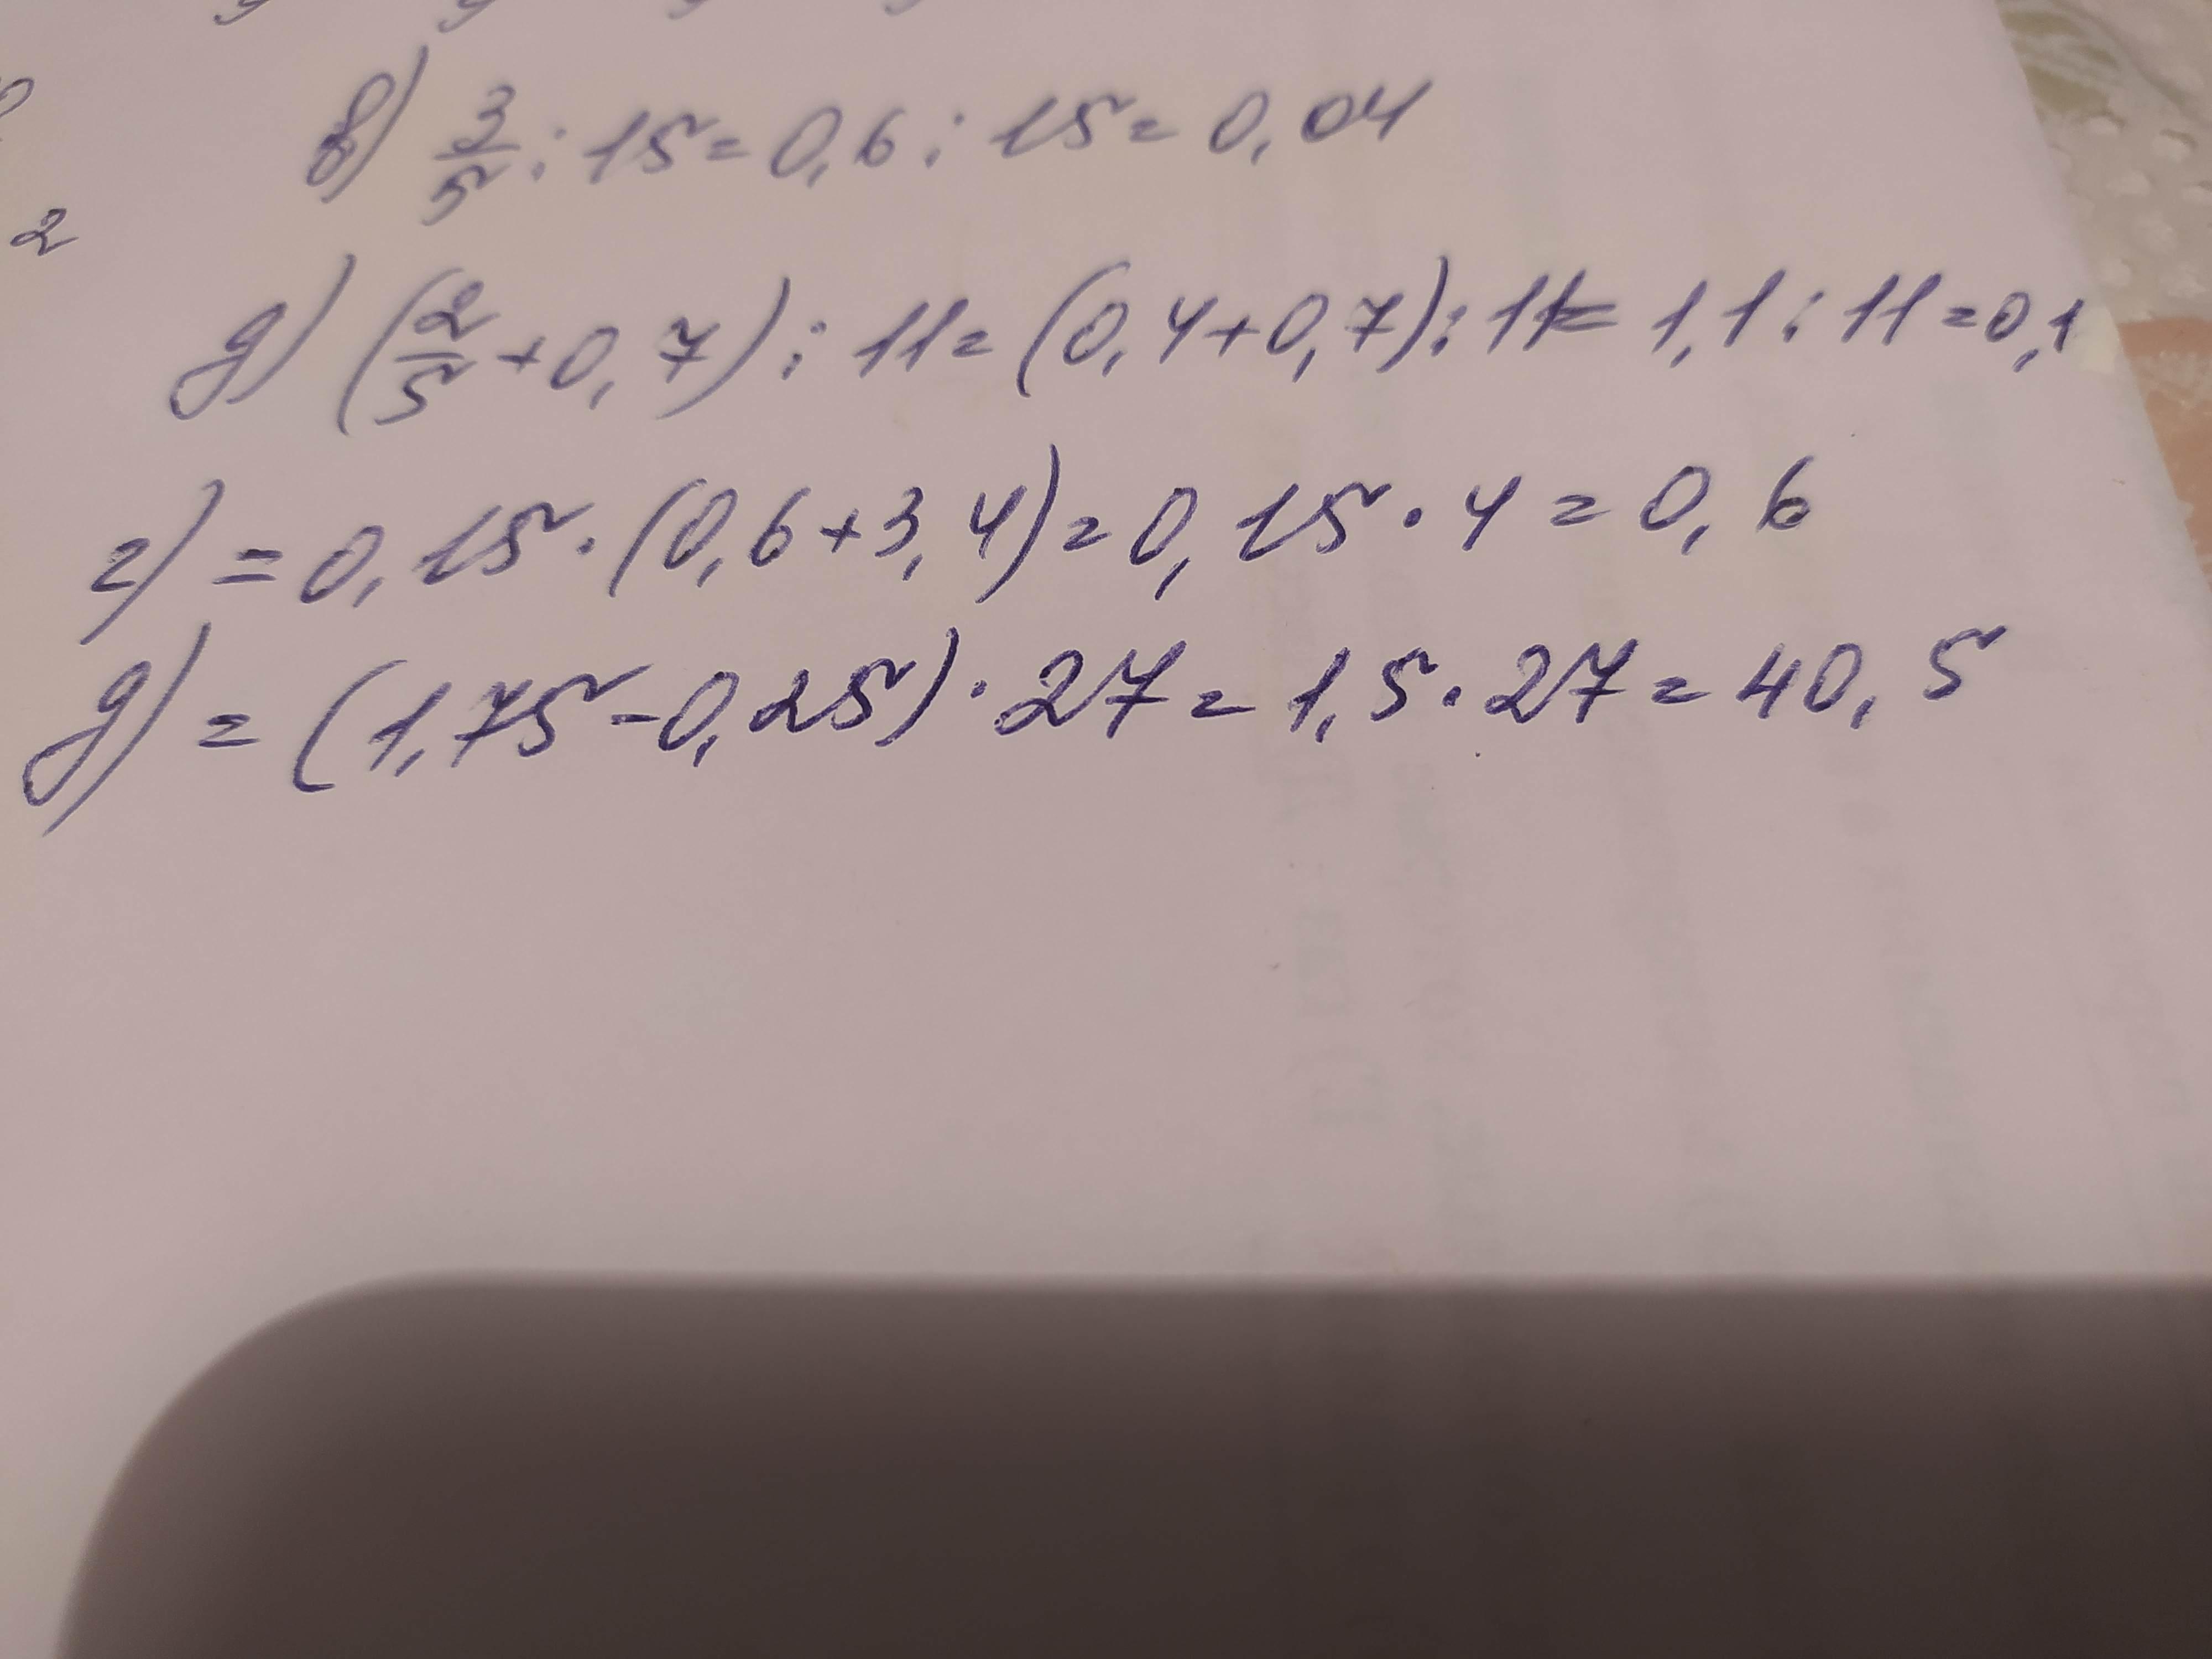 в) 3/5 : 15 = 0,6 : 15 = 0,04
2
д) (2/5 + 0,7) : 11 = (0,4 + 0,7) : 11 = 1,1 : 11 = 0,1
г) = 0,15 · (0,6 + 3,4) = 0,15 · 4 = 0,6
д) = (1,75 - 0,25) · 27 = 1,5 · 27 = 40,5